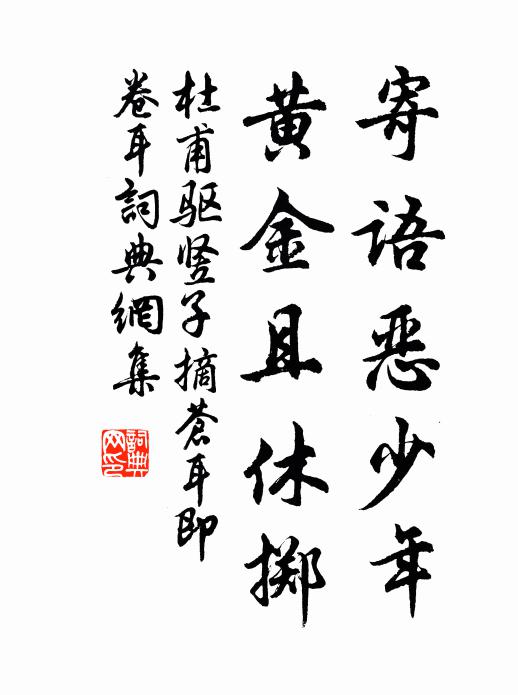 寄语恶少年
黄金且休掷
杜甫驱竖子摘苍耳即
卷耳詞典網集
詞典
网印